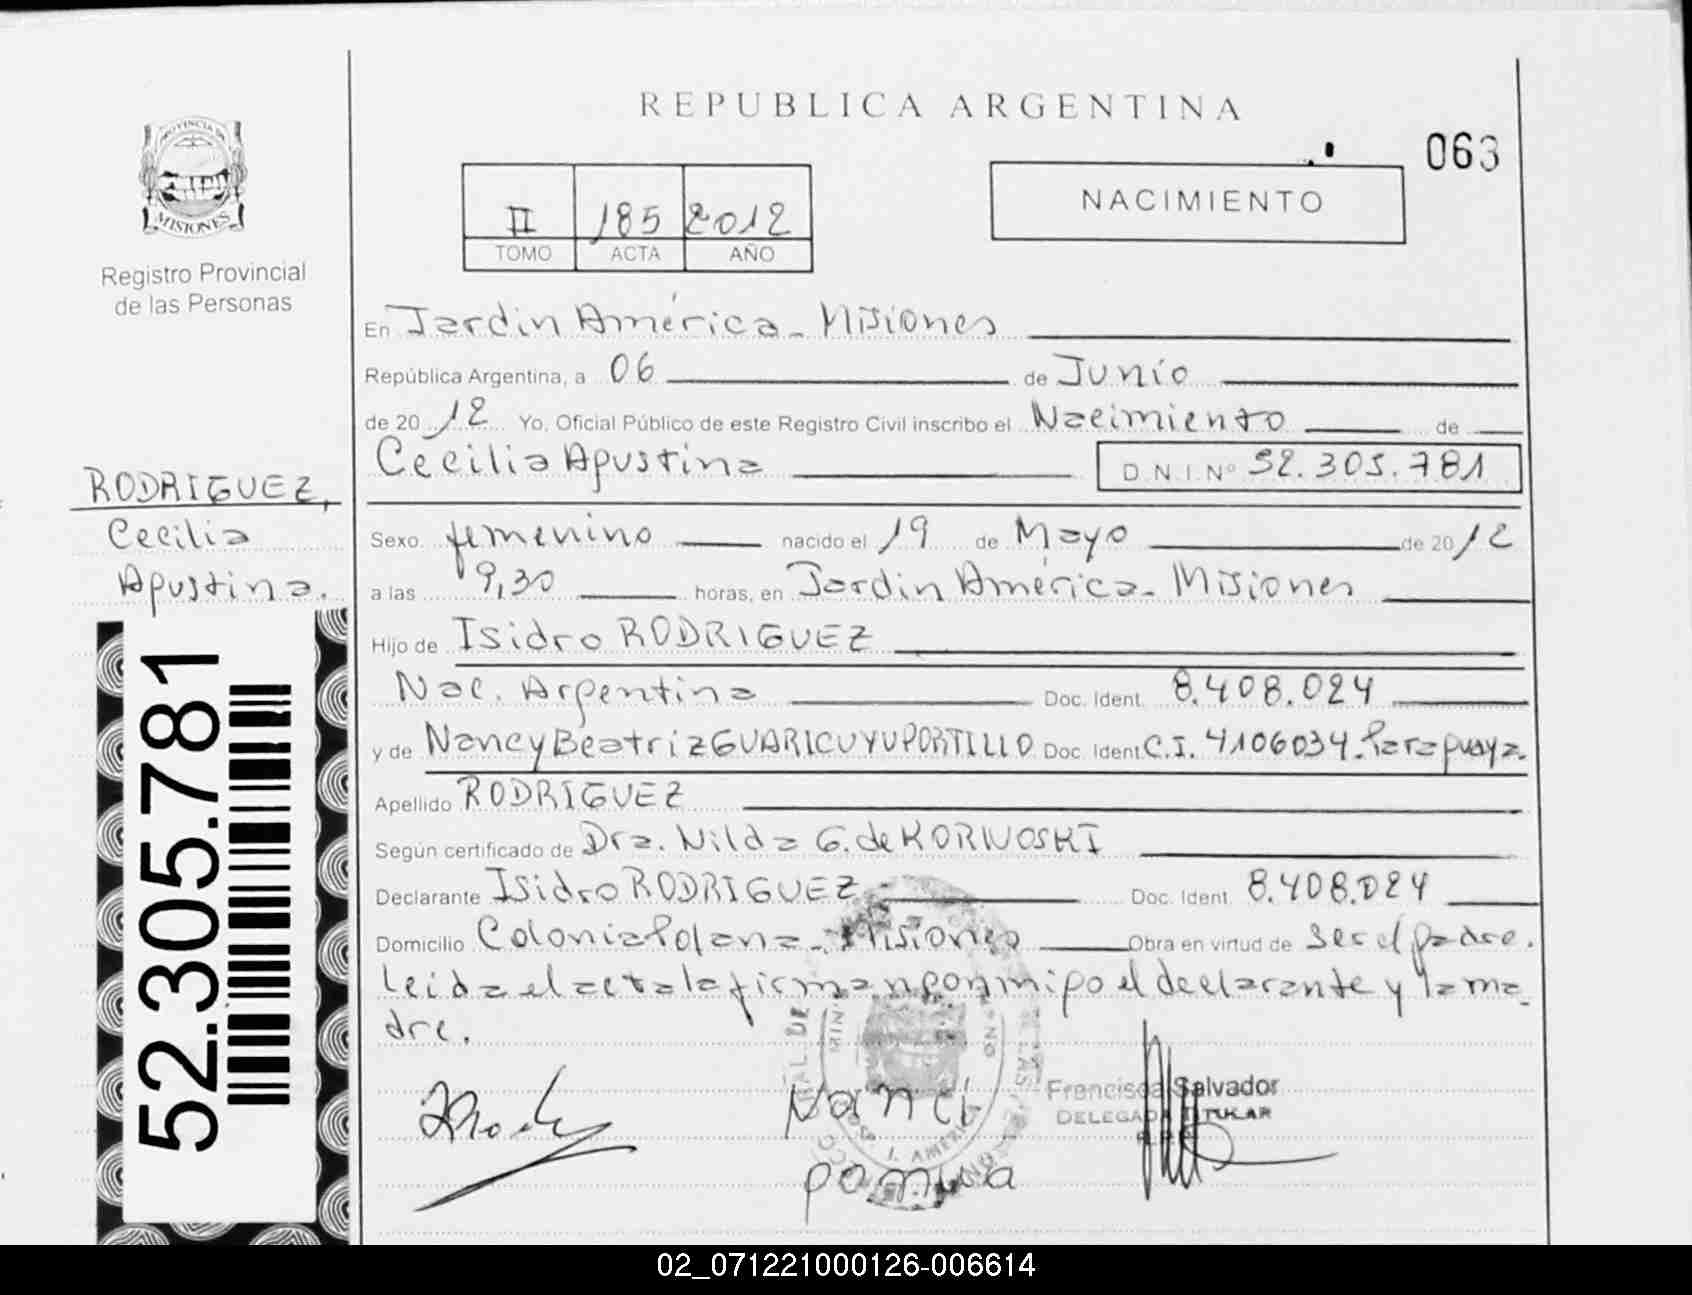 REPUBLICA ARGENTINA
063
PROVINCIA DE
MISIONES
Registro Provincial
de las Personas
II 185 2012
TOMO ACTA AÑO
NACIMIENTO
En Jardin América - Misiones
República Argentina, a 06 de Junio
de 2012 Yo, Oficial Público de este Registro Civil inscribo el Nacimiento de
Cecilia Agustina D.N.I. Nº 52.305.781
RODRIGUEZ,
Cecilia
Agustina.
Sexo femenino nacido el 19 de Mayo de 2012
a las 9,30 horas, en Jardin América - Misiones
Hijo de Isidro RODRIGUEZ
Nac. Argentina Doc. Ident. 8.408.024
y de Nancy Beatriz GUARICUYU PORTILLO Doc. Ident. C.I. 4106034 - Paraguaya.
Apellido RODRIGUEZ
Según certificado de Dra. Nilda G. de KORNOSKI
Declarante Isidro RODRIGUEZ Doc. Ident. 8.408.024
Domicilio Colonia Polana - Misiones Obra en virtud de Ser el padre.
Leida el acta la firman por mi po el declarante y la ma-
dre.
52.305.781
Nanci
Francisca Salvador
DELEGADA TITULAR
02_071221000126-006614